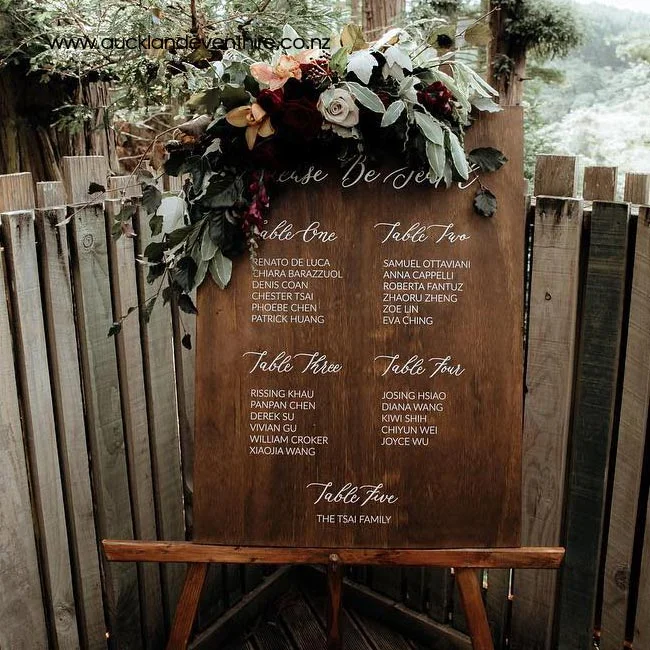 www.aucklandeventhire.co.nz
Please Be Seated
Table One
RENATO DE LUCA
CHIARA BARAZZUOL
DENIS COAN
CHESTER TSAI
PHOEBE CHEN
PATRICK HUANG
Table Two
SAMUEL OTTAVIANI
ANNA CAPPELLI
ROBERTA FANTUZ
ZHAORU ZHENG
ZOE LIN
EVA CHING
Table Three
RISSING KHAU
PANPAN CHEN
DEREK SU
VIVIAN GU
WILLIAM CROKER
XIAOJIA WANG
Table Four
JOSING HSIAO
DIANA WANG
KIWI SHIH
CHIYUN WEI
JOYCE WU
Table Five
THE TSAI FAMILY